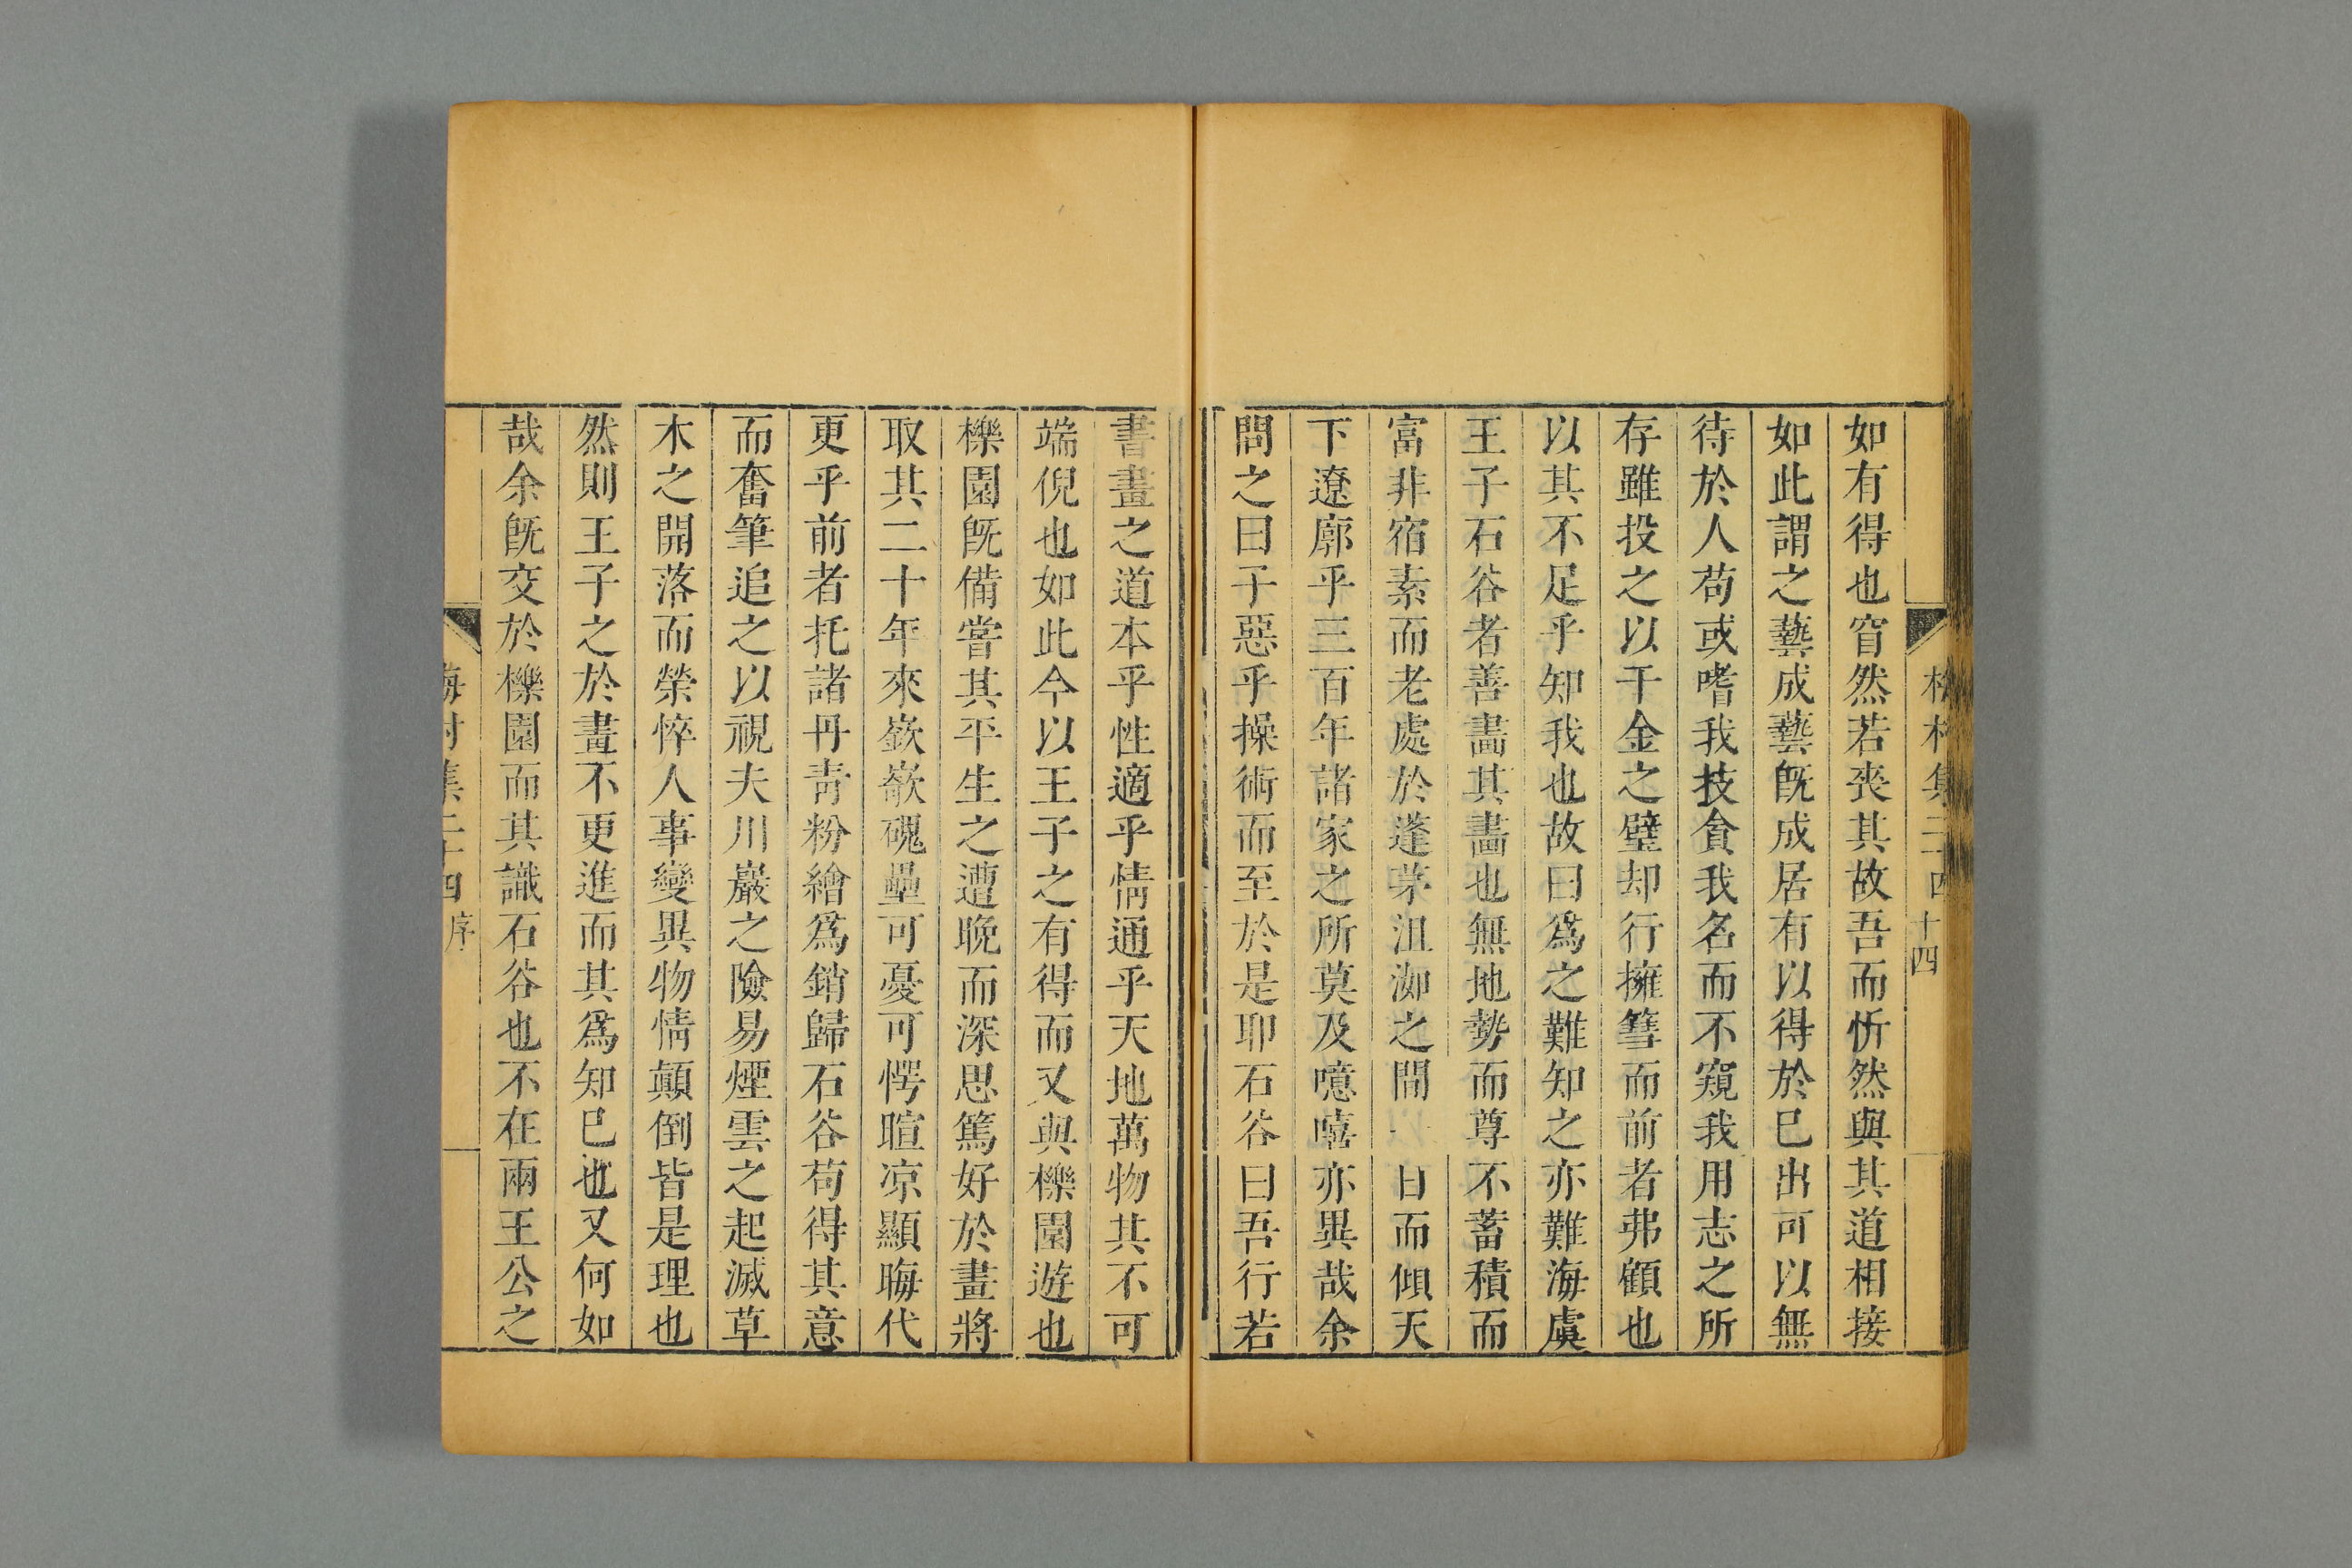 如有得也窅然若喪其故吾而忻然與其道相接
如此謂之藝成藝旣成居有以得於巳出可以無
待於人苟或嗜我技貪我名而不窺我用志之所
存雖投之以千金之璧却行擁篲而前者弗顧也
以其不足乎知我也故曰爲之難知之亦難海虞
王子石谷者善畵其畵也無地勢而尊不蓄積而
富非宿素而老處於蓬茅沮洳之間一日而傾天
下遼廓乎三百年諸家之所莫及噫嘻亦異哉余
問之曰子惡乎操術而至於是耶石谷曰吾行若
書畫之道本乎性適乎情通乎天地萬物其不可
端倪也如此今以王子之有得而又與櫟園遊也
櫟園旣備嘗其平生之遭晚而深思篤好於畫將
取其二十年來嶔嶔磈壘可憂可愕暄凉顯晦代
更乎前者托諸丹青粉繪爲銷歸石谷苟得其意
而奮筆追之以視夫川巖之險易煙雲之起滅草
木之開落而榮悴人事變異物情顛倒皆是理也
然則王子之於畫不更進而其爲知巳也又何如
哉余旣交於櫟園而其識石谷也不在兩王公之
梅村集二十四序